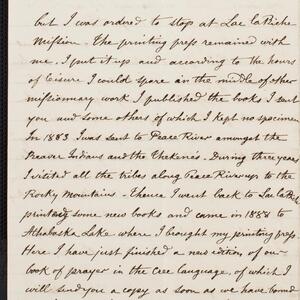 but I was ordered to stop at Lac la Biche
Mission. The printing press remained with
me. I put it up and according to the hours
of leisure I could spare in the middle of other
missionnary work I published the books I sent
you and some others of which I kept no specimen
In 1883 I was sent to Peace River amongst the
Beaver Indians and the Thekenés. During three years
I visited all the tribes along Peace River up to the
Rocky Mountains. Thence I went back to Lac la Bich
printed some new books and came in 1888 to
Athabaska Lake where I brought my printing press.
Here I have just finished a new edition of our
book of prayer in the cree language, of which I
will send you a copy as soon as we have bound